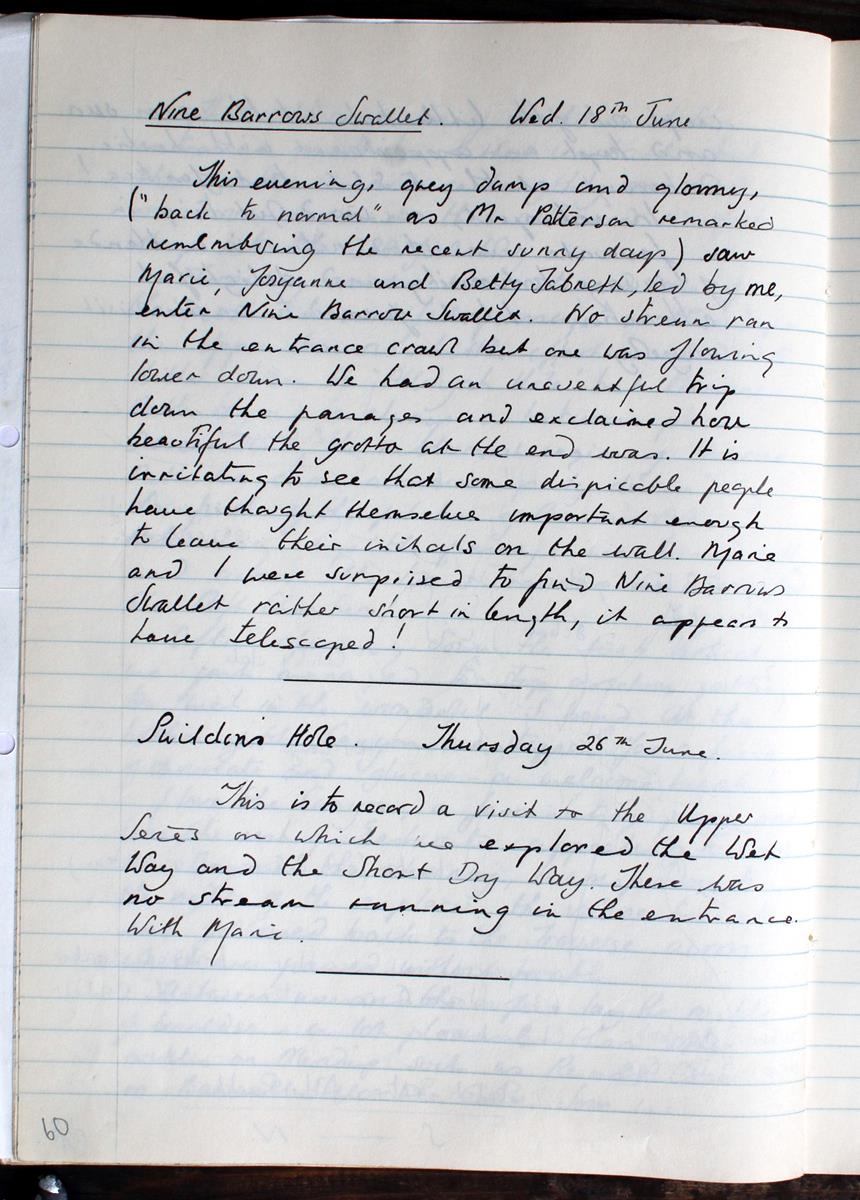 Nine Barrows Swallet. Wed. 18th June
This evening, grey damp and gloomy,
("back to normal" as Mr Patterson remarked
remembering the recent sunny days) saw
Marie, Josyanne and Betty, led by me,
enter Nine Barrow Swallet. No stream ran
in the entrance crawl but one was flowing
lower down. We had an uneventful trip
down the passages and exclaimed how
beautiful the grotto at the end was. It is
irritating to see that some dispicable people
have thought themselves important enough
to leave their initials on the wall. Marie
and I were surprised to find Nine Barrows
Swallet rather short in length, it appears to
have telescoped!
Swildon's Hole. Thursday 26th June.
This is to record a visit to the Upper
Series on which we explored the Wet
Way and the Short Dry Way. There was
no stream running in the entrance.
With Marie.
60